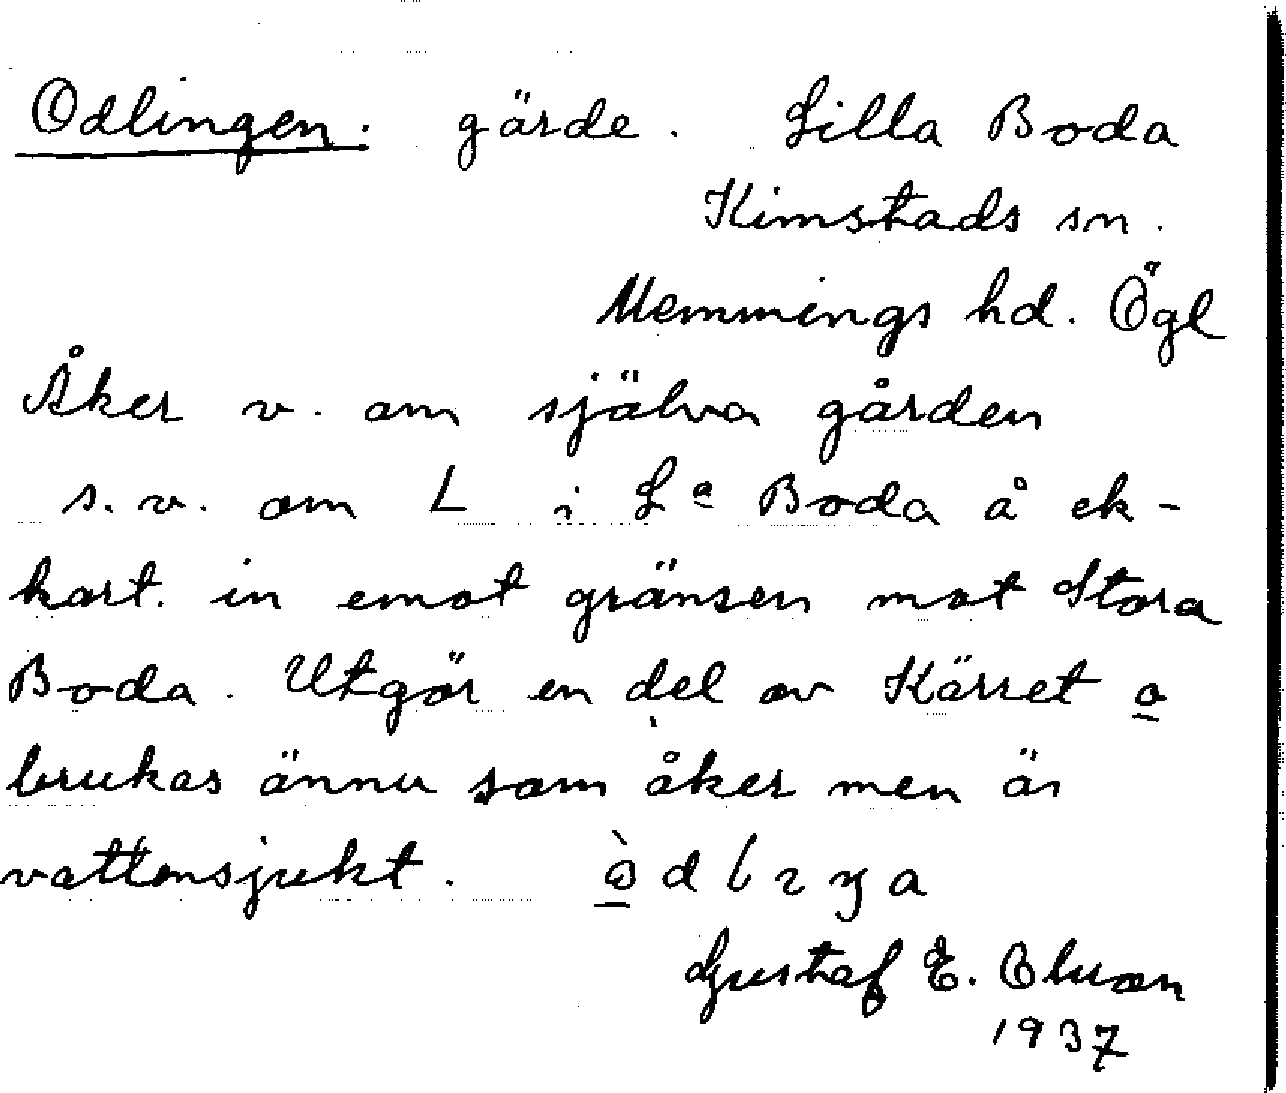 Odlingen. gärde. Lilla Boda
Kimstads sn.
Memmings hd. Ögl
Åker v. om själva gården
s.v. om L i La Boda å ek-
kart. in emot gränsen mot Stora
Boda. Utgör en del av Kärret o
brukas ännu som åker men är
vattensjukt.
Gustaf E.
1937